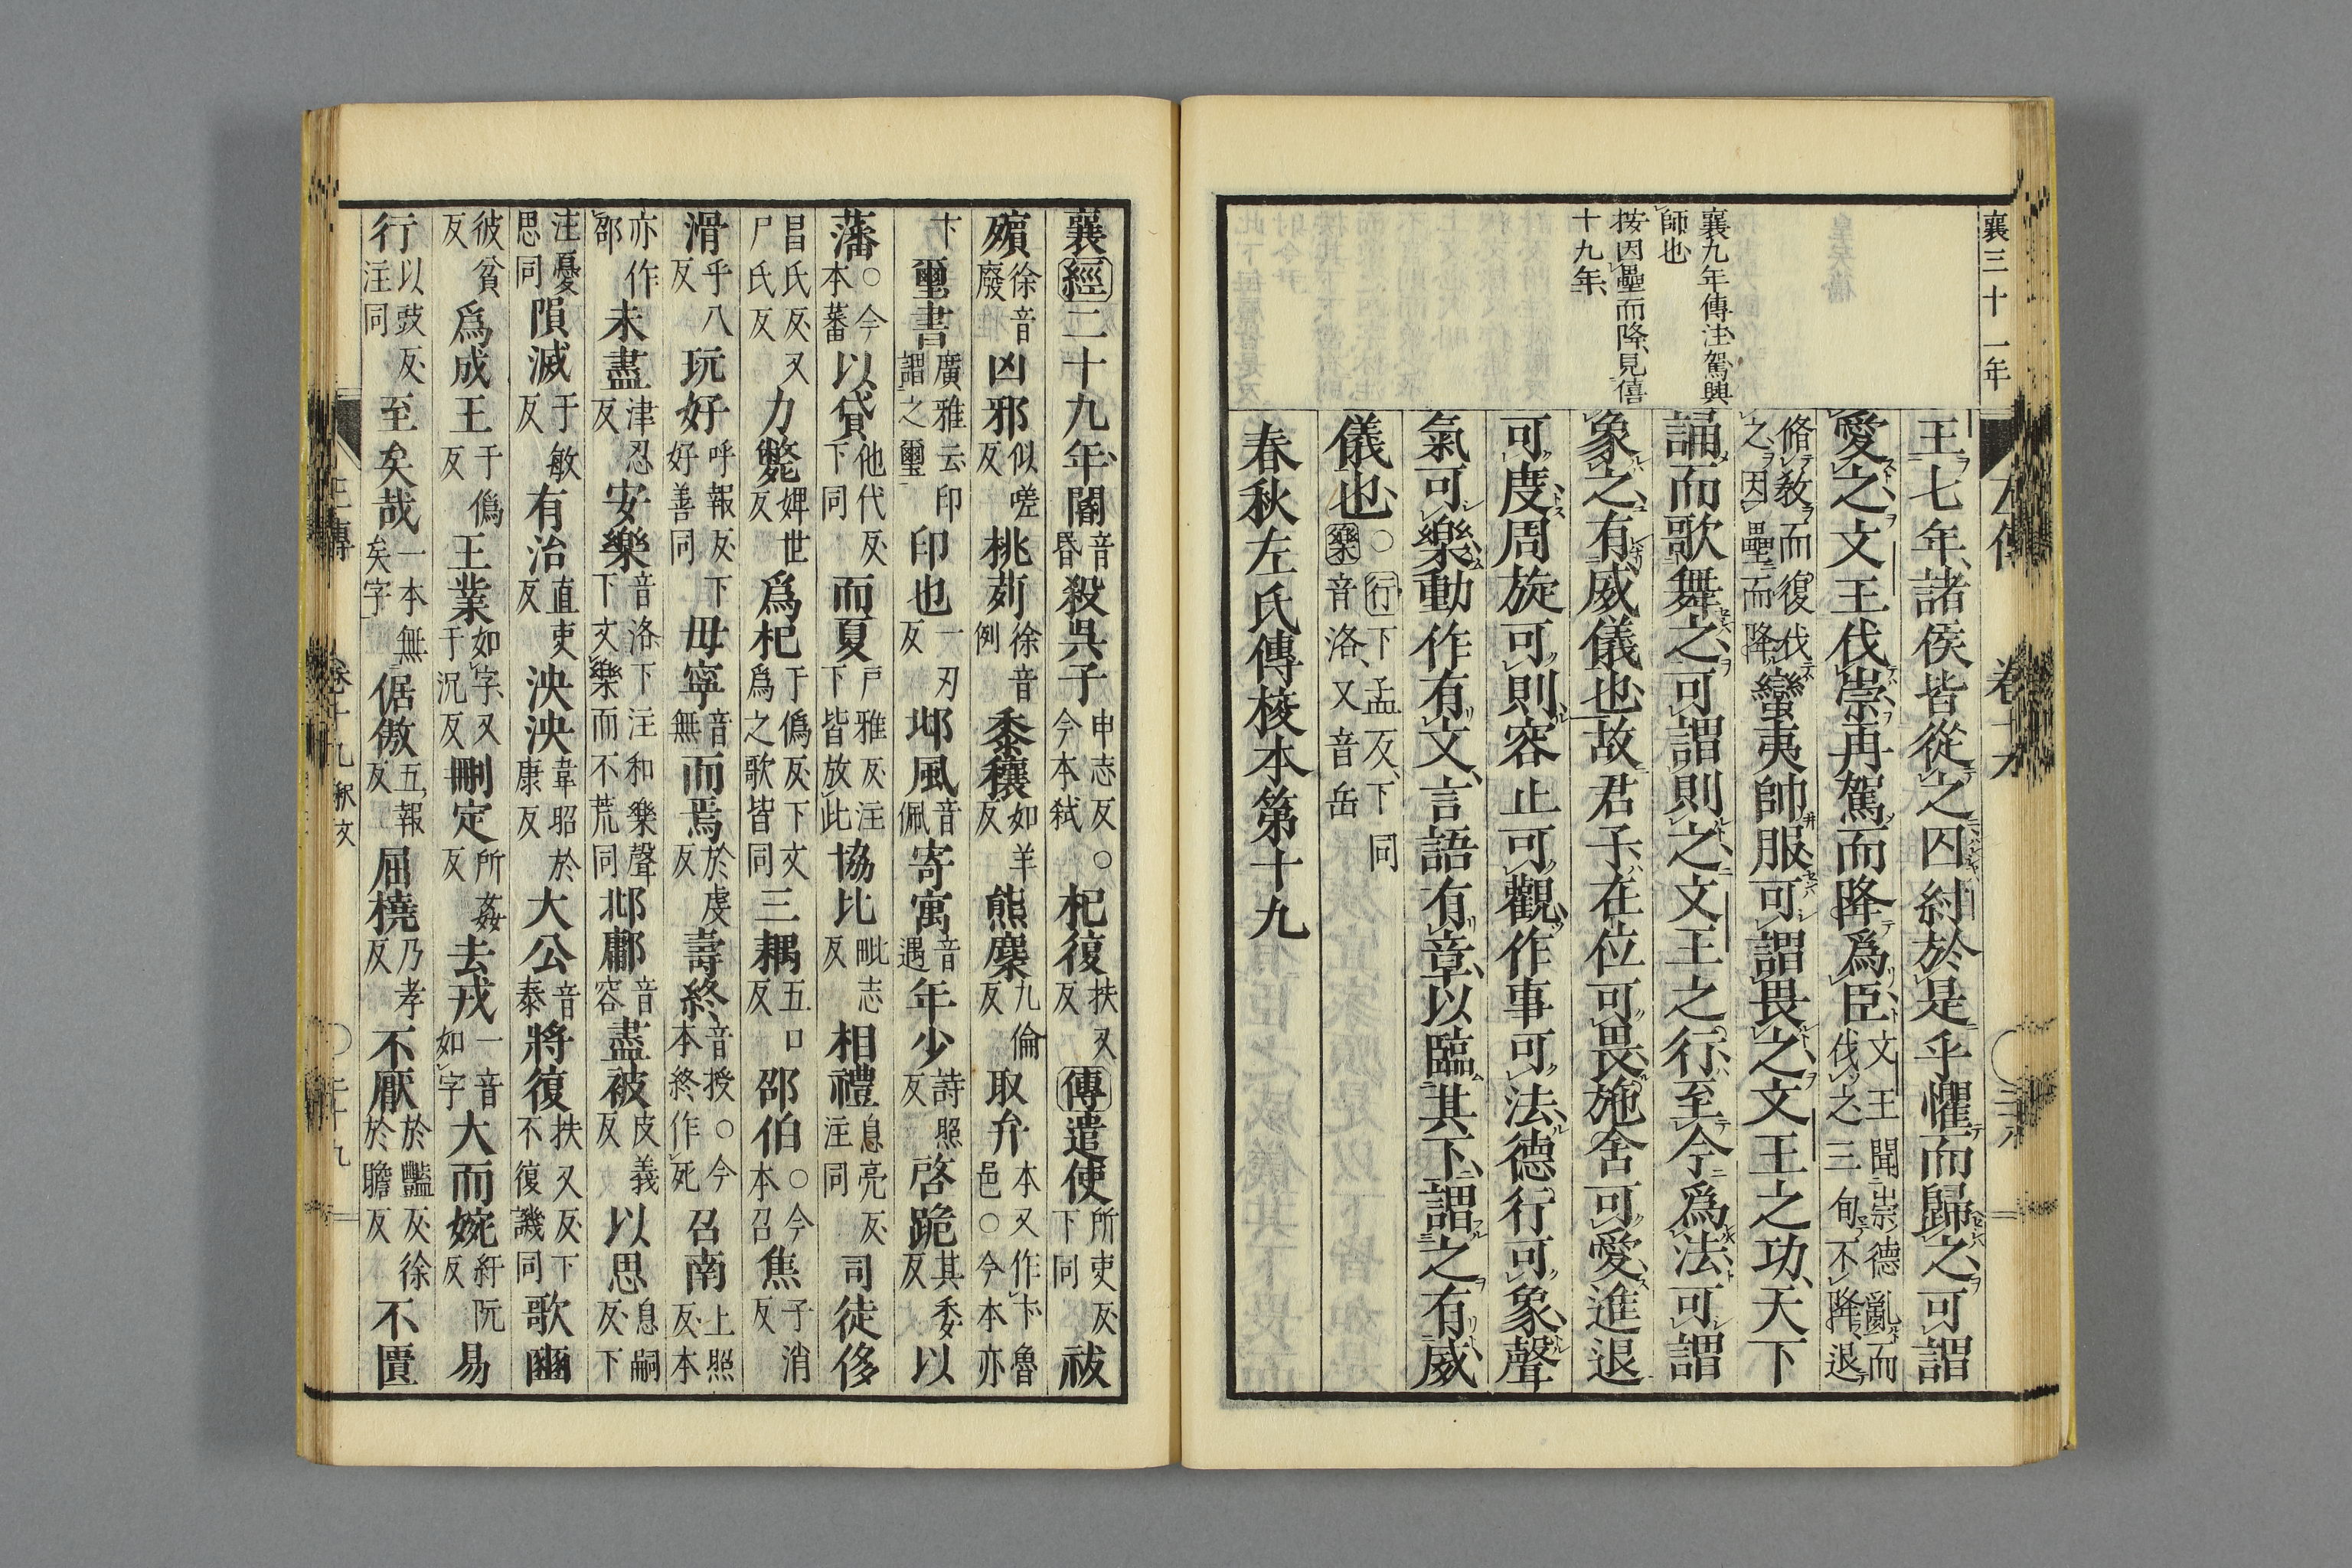 襄三十一年
襄九年傳注、駕與
師也
按因壘而降、見僖
十九年、
王七年、諸侯皆從之囚、紂於是乎懼而歸之、可謂
愛之、文王伐崇、再駕而降爲臣、文王聞崇德亂而伐之、三旬不降、退
脩敎而復伐之、因壘而降、蠻夷帥服、可謂畏之、文王之功、天下
誦而歌舞之、可謂則之、文王之行、至今爲法、可謂
象之、有威儀也、故君子在位可畏、施舍可愛、進退
可度、周旋可則、容止可觀、作事可法、德行可象、聲
氣可樂、動作有文、言語有章、以臨其下、謂之有威
儀也、○行下孟反、下同樂音洛、又音岳
春秋左氏傳校本第十九
襄經二十九年、閽音昏殺吳子申志反○今本弑杞復扶又反傳遣使所吏反下同祓
殯徐音廢凶邪似嗟反桃茢徐音例黍穰如羊反熊麇九倫反取弁本又作卞魯邑○今本亦
卞璽書廣雅云印謂之璽印也一刃反邶風音佩寄寓音遇年少詩照反啓跪其委反以
藩○今本蕃以貸他代反下同而夏戸雅反注下皆放此協比毗志反相禮息亮反注同司徒侈
昌氏反又尸氏反力斃婢世反爲杞于僞反下文爲之歌皆同三耦五口反邵伯○今本召焦子消反
滑乎八反玩好呼報反下好善同毋寧音無而焉於虔反壽終音授○今本終作死召南上照反本
亦作邵未盡津忍反安樂音洛下注和樂聲下文樂而不荒同邶鄘音容盡被皮義反以思息嗣反下
注憂思同隕滅于敏反有治直吏反泱泱韋昭於康反大公音泰將復扶又反下不復譏同歌豳
彼貧反爲成王于僞反王業如字又于況反刪定所姦反去戎一音如字大而婉紆阮反易
行以豉反注同至矣哉一本無矣字倨傲五報反屈橈乃孝反不厭於豔反徐於贍反不匱
卷十九釈文